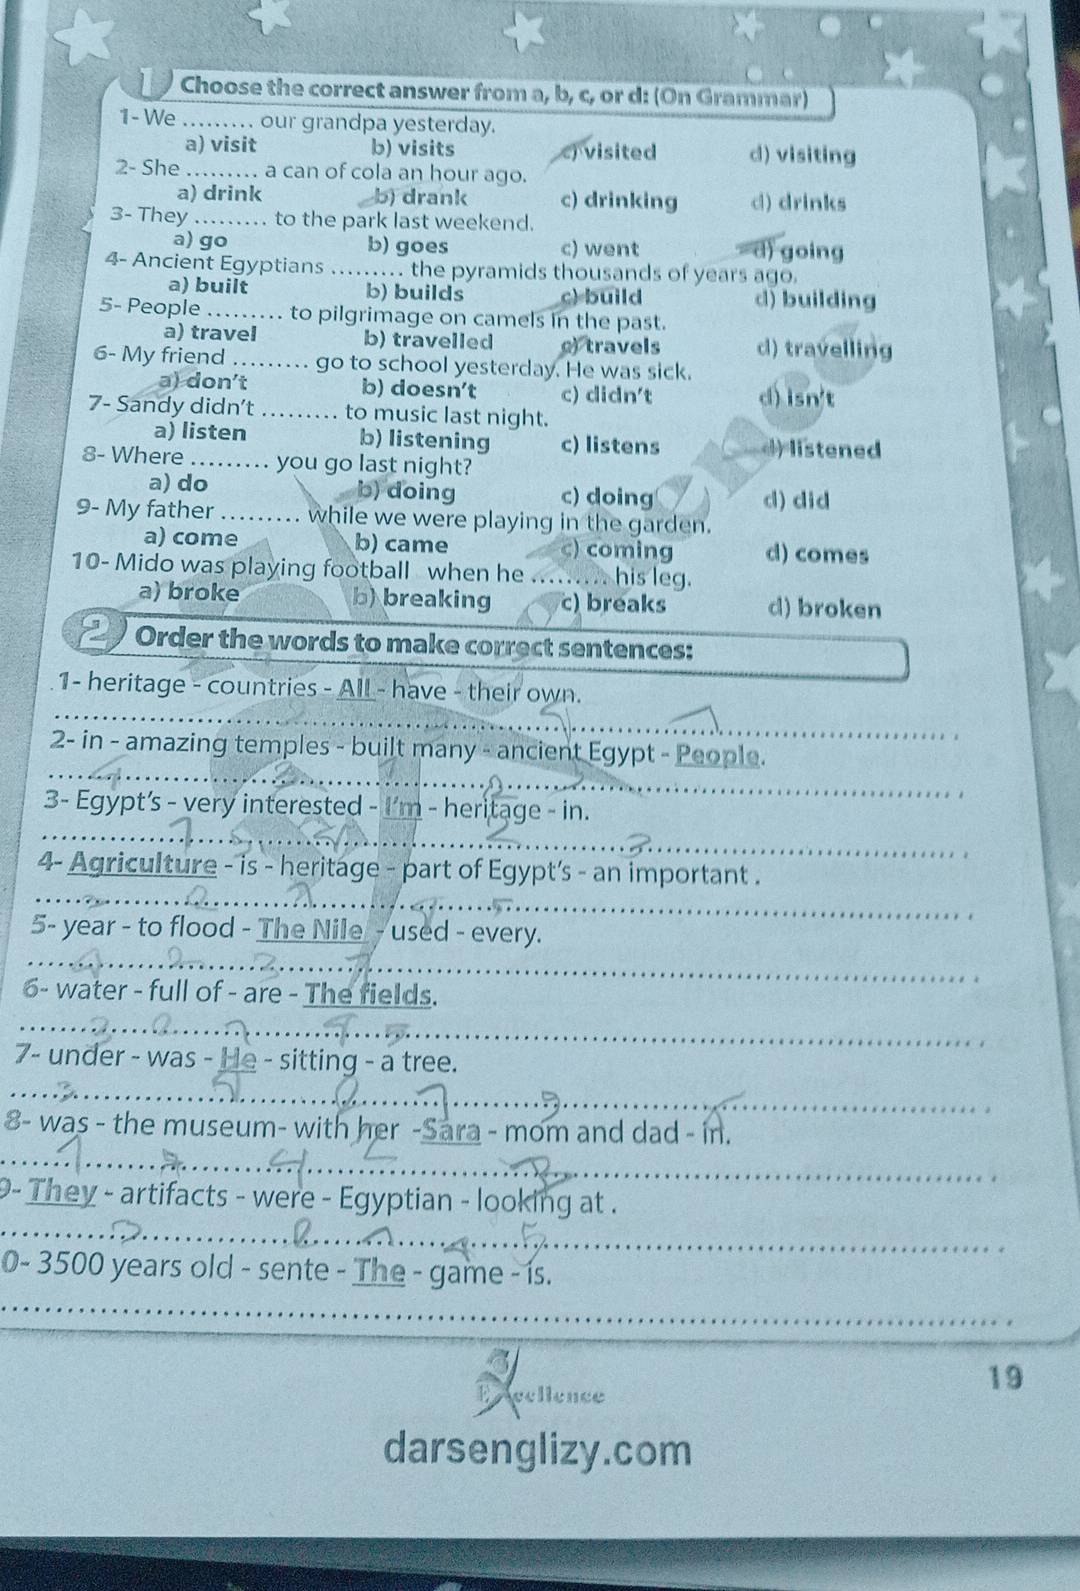 1 Choose the correct answer from a, b, c, or d: (On Grammar)
1- We ......... our grandpa yesterday.
a) visit b) visits c) visited d) visiting
2- She ......... a can of cola an hour ago.
a) drink b) drank c) drinking d) drinks
3- They ......... to the park last weekend.
a) go b) goes c) went d) going
4- Ancient Egyptians ......... the pyramids thousands of years ago.
a) built b) builds c) build d) building
5- People ......... to pilgrimage on camels in the past.
a) travel b) travelled c) travels d) travelling
6- My friend ......... go to school yesterday. He was sick.
a) don't b) doesn't c) didn't d) isn't
7- Sandy didn't ......... to music last night.
a) listen b) listening c) listens d) listened
8- Where ......... you go last night?
a) do b) doing c) doing d) did
9- My father ......... while we were playing in the garden.
a) come b) came c) coming d) comes
10- Mido was playing football when he ......... his leg.
a) broke b) breaking c) breaks d) broken
2 Order the words to make correct sentences:
1- heritage - countries - All - have - their own.
2- in - amazing temples - built many - ancient Egypt - People.
3- Egypt's - very interested - I'm - heritage - in.
4- Agriculture - is - heritage - part of Egypt's - an important .
5- year - to flood - The Nile - used - every.
6- water - full of - are - The fields.
7- under - was - He - sitting - a tree.
8- was - the museum- with her -Sara - mom and dad - in.
9- They - artifacts - were - Egyptian - looking at .
0- 3500 years old - sente - The - game - is.
Excellence
19
darsenglizy.com